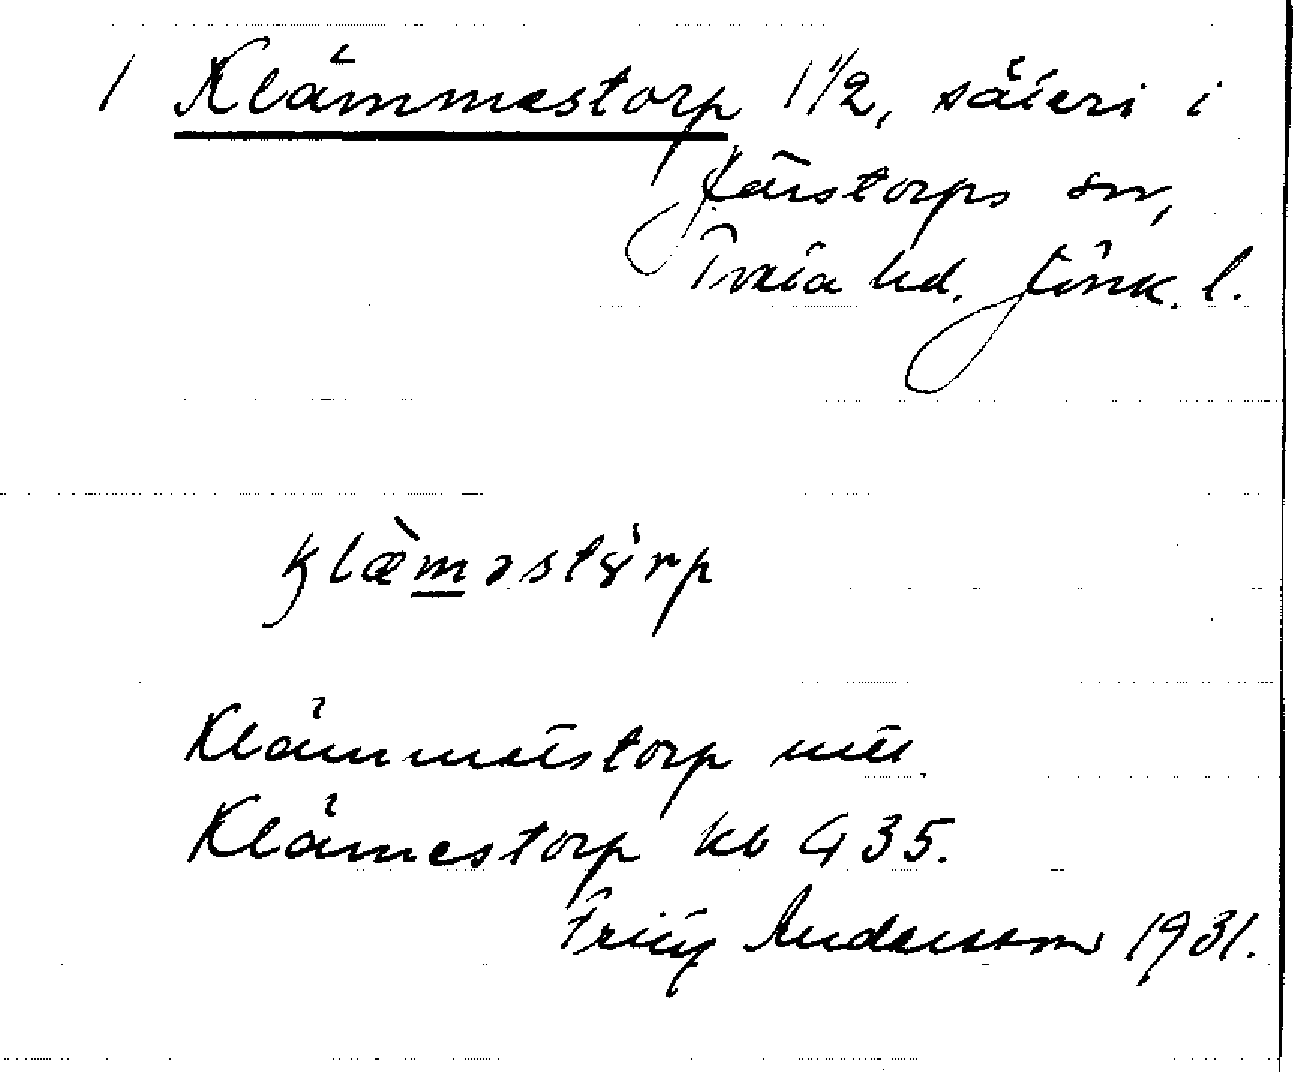 1 Klämmestorp 1 1/2, säteri i
Järstorps sn,
Tveta hd. Jönk. l.
klæ̀məstɤ̀rp
Klämmestorp
Klämestorp kb G 35.
Fritz Andersson 1931.